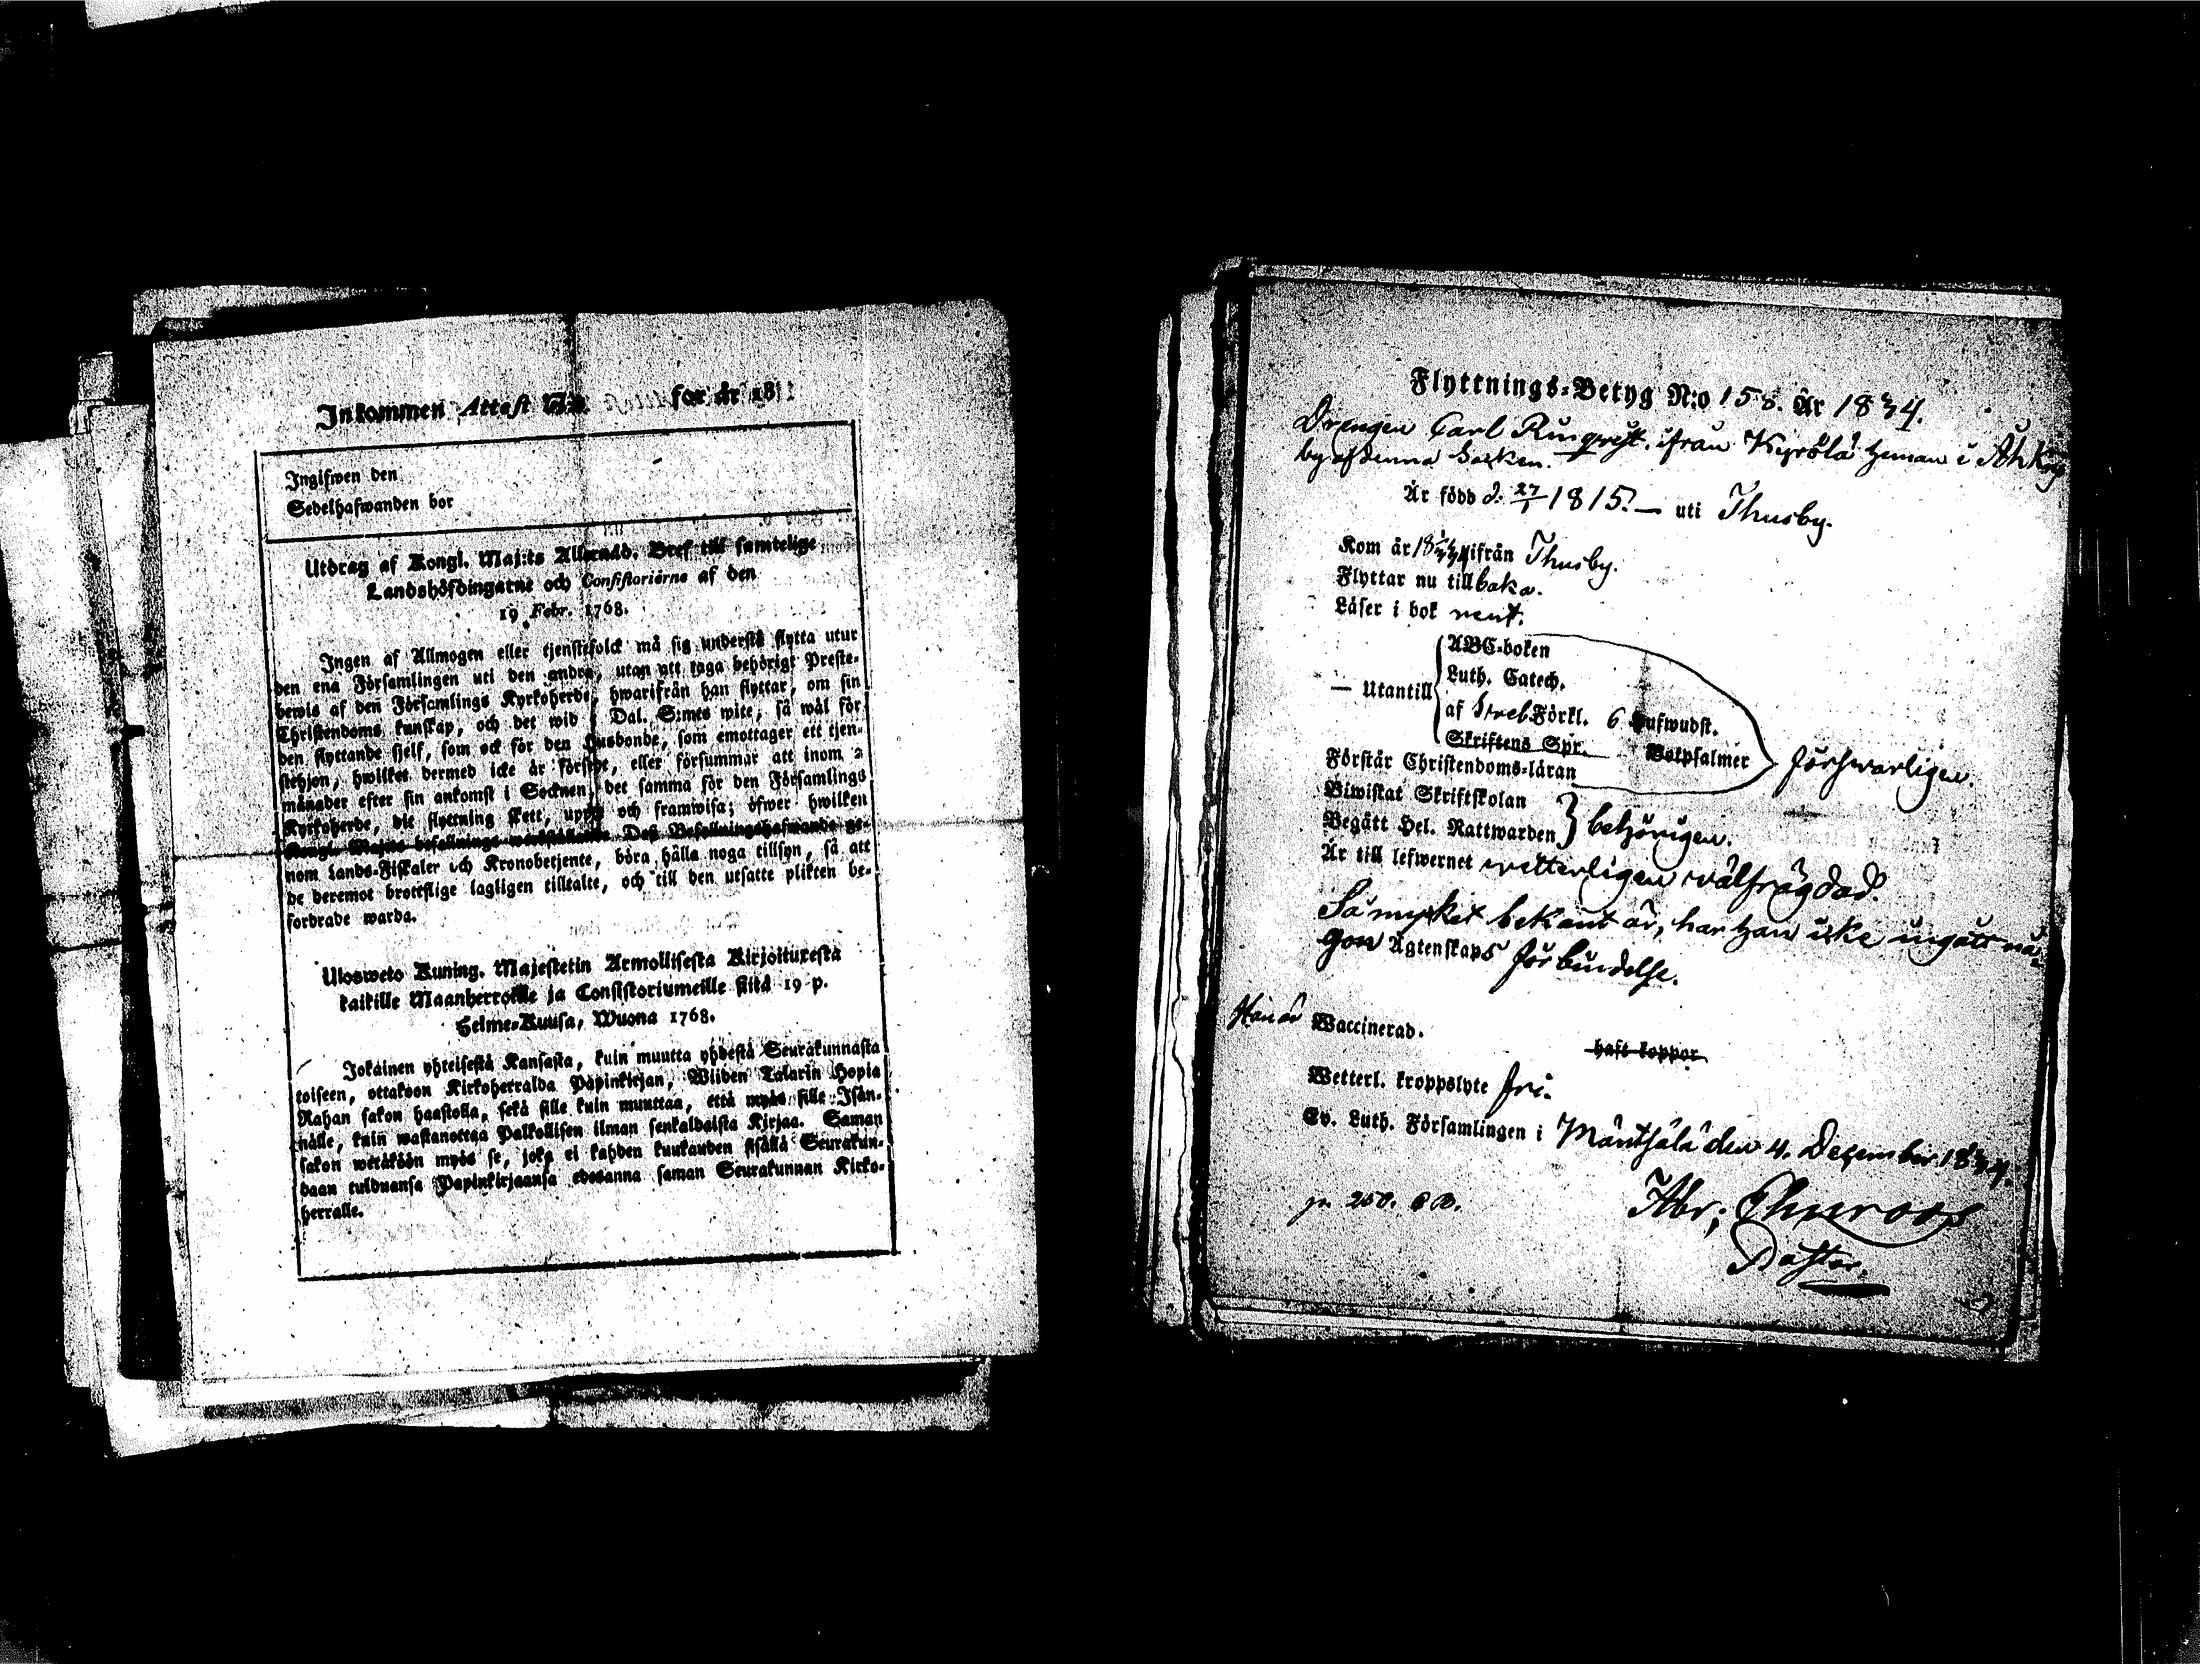 Inkommen Attest N:o för år 18
Ingifwen den
Sedelhafwanden bor
Utdrag af Kongl. Maj:ts Allernåd. Bref till samtelige
Landshöfdingarne och Consistorierne af den
19 Febr. 1768.
Ingen af Allmogen eller tjenstefolck må sig understå flytta utur
den ena Församlingen uti den andra, utan att taga behörigt Preste-
bewis af den Församlings Kyrkoherde, hwarifrån han flyttar, om sin
Christendoms kunskap, och det wid 5 Dal. S:mts wite, så wäl för
den flyttande sjelf, som ock för den Husbonde, som emottager ett tjen-
stehjon, hwilket dermed icke är försedt, eller försummar att inom 2
månader efter sin ankomst i Socknen, det samma för den Församlings
Kyrkoherde, dit flyttning skett, uppte och framwisa; öfwer hwilken
Kongl. Maj:ts befallnings werkställande Deß Befallningshafwande ge-
nom Lands-Fiskaler och Kronobetjente, böra hålla noga tillsyn, så att
de deremot brottslige lagligen tilltalte, och till den utsatte plikten be-
fordrade warda.
Ulosweto Kuning. Majestetin Armollisesta Kirjoituxesta
kaikille Maanherroille ja Consistoriumeille siitä 19 p.
Helme-Kuusa, Wuona 1768.
Jokainen yhteisestä Kansasta, kuin muutta yhdestä Seurakunnasta
toiseen, ottakoon Kirkoherralda Papinkirjan, Wiiden Talarin Hopia
Rahan sakon haastolla, sekä sille kuin muuttaa, että myös sille Isän-
nälle, kuin wastanottaa Palkollisen ilman senkaldaista Kirjaa. Saman
sakon wetäköön myös se, joka ei kahden kuukauden sisällä Seurakun-
daan tulduansa Papinkirjaansa edesanna saman Seurakunnan Kirko-
herralle.
Flyttnings-Betyg N:o 158. År 1834.
Drengen Carl Runqvist. ifrån Kyrölä heman i
by af denna Socken.
Är född d. 27/1 1815. — uti Thusby.
Kom år 1834 ifrån Thusby.
Flyttar nu tillbaka.
Läser i bok rent.
— Utantill
ABC-boken
Luth. Catech.
af Sveb. Förkl. 6 Hufwudst.
Skriftens Spr. Botpsalmer
Förstår Christendoms-läran
försvarligen.
Biwistat Skriftskolan
Begått Hel. Nattwarden } behörigen.
Är till lefwernet vetterligen välfrägdad.
Så mycket bekant är, har han icke ingått nå-
gon Ägtenskaps förbindelse.
Han är Waccinerad.
haft koppor
Wetterl. kroppslyte fri.
Ev. Luth. Församlingen i Mäntsälä den 4. December 1834.
p. 250. C B.
Abr; Thuroos
Pastor.